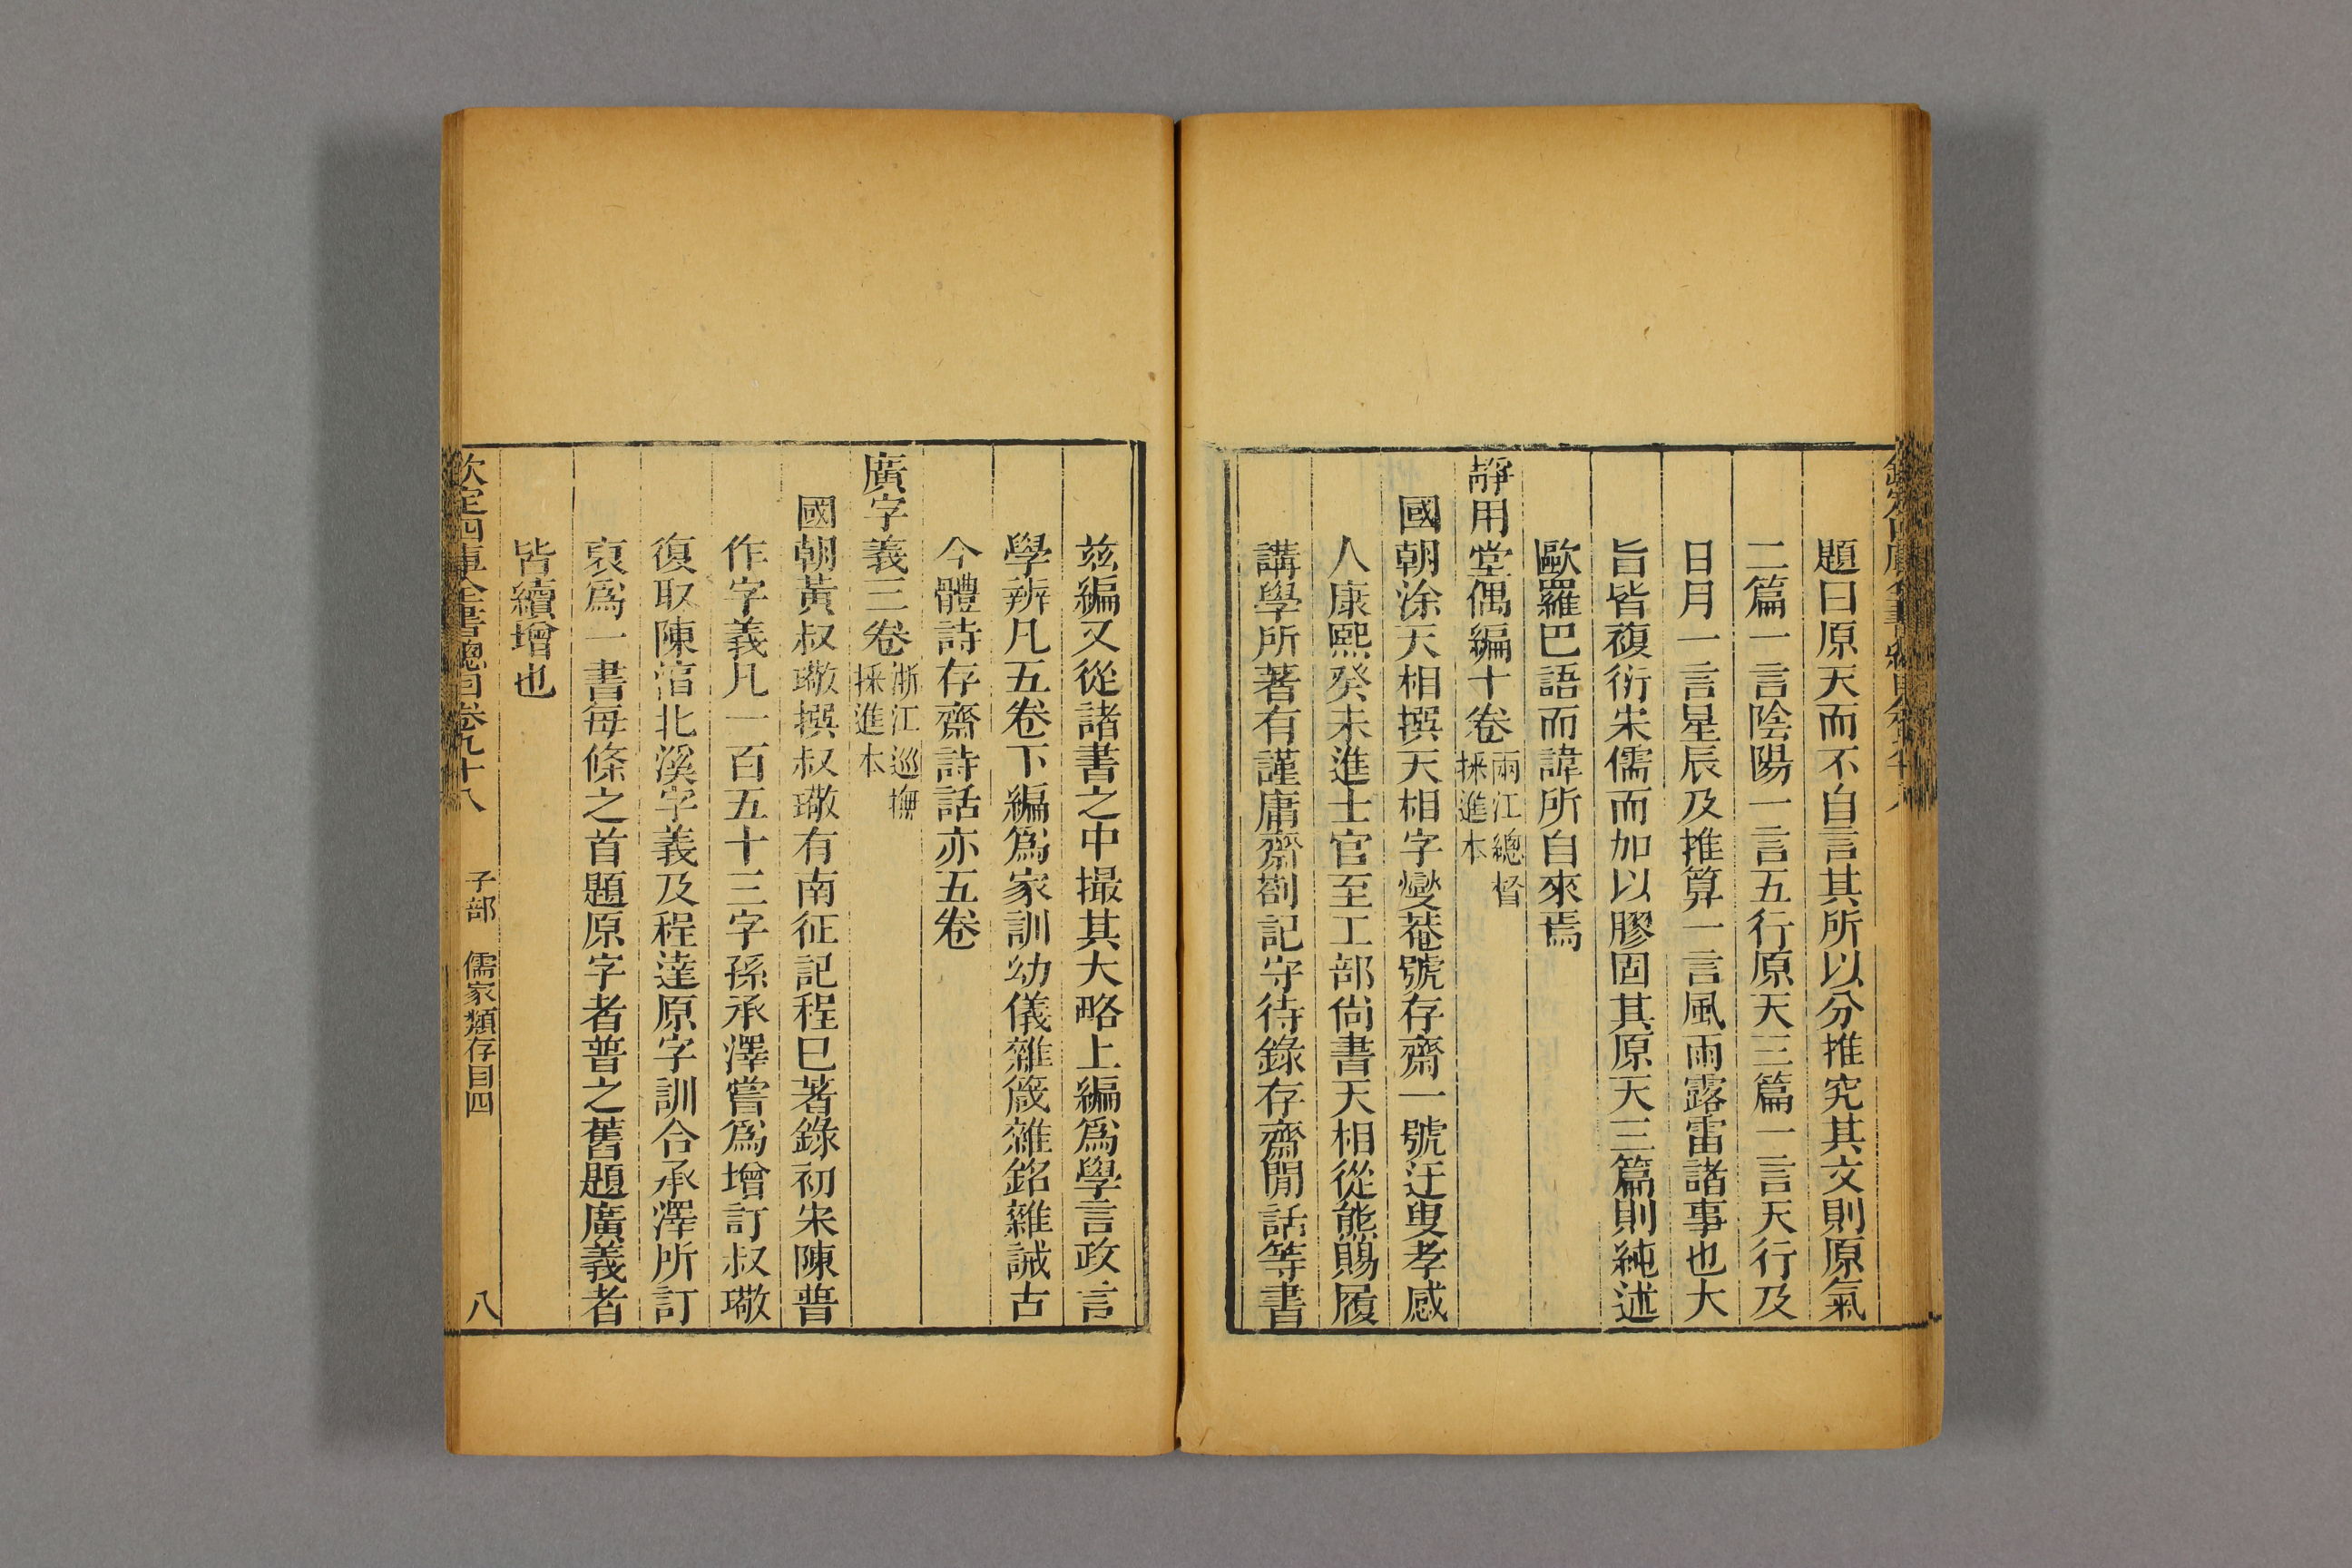 題曰原天而不自言其所以分推究其文則原氣
二篇一言陰陽一言五行原天三篇一言天行及
日月一言星辰及推算一言風雨露雷諸事也大
旨皆複衍宋儒而加以膠固其原天三篇則純述
歐羅巴語而諱所自來焉
靜用堂偶編十卷兩江總督採進本
國朝涂天相撰天相字燮菴號存齋一號迂叟孝感
人康熙癸未進士官至工部尚書天相從熊賜履
講學所著有謹庸齋劄記守待錄存齋閒話等書
茲編又從諸書之中撮其大略上編爲學言政言
學辨凡五卷下編爲家訓幼儀雜箴雜銘雜誡古
今體詩存齋詩話亦五卷
廣字義三卷浙江巡撫採進本
國朝黃叔璥撰叔璥有南征記程已著錄初宋陳普
作字義凡一百五十三字孫承澤嘗爲增訂叔璥
復取陳湻北溪字義及程達原字訓合承澤所訂
裒爲一書每條之首題原字者普之舊題廣義者
皆續增也
欽定四庫全書總目卷九十八 子部 儒家類存目四 八